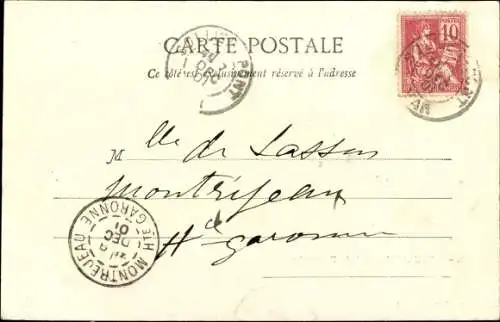 CARTE POSTALE
Ce côté est exclusivement réservé à l'adresse
POSTES
10
M lle de Lassus
Montréjeau
Hte garonne
MONTREJEAU
HTE GARONNE
DEC
01